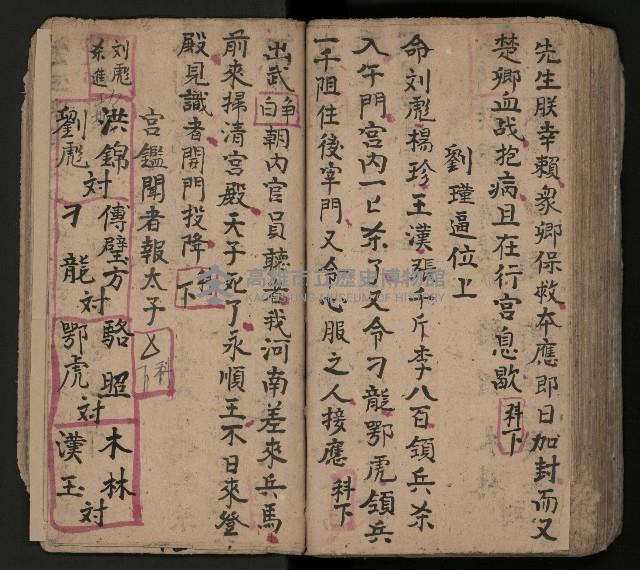 先生朕幸賴衆卿保救本應即日加封而又
楚卿血战抱病且在行宫息歇 科下
劉瑾逼位上
命刘彪楊珍王漢張千斤李八百領兵杀
入午門宫内一匕杀了又令刁龍鄂虎領兵
一千阻住後宰門又令心服之人接應 科下
出武 争白 朝内官員聽告我河南差來兵馬
前來掃清宫殿天子死了永順王不日來登
殿見識者開門投降 下
宫鑑聞者報太子 科下
刘彪杀進
洪錦対傅璧方 駱照 木林
劉彪対刁龍対鄂虎対漢玉対
高雄市立歷史博物館
KAOHSIUNG MUSEUM OF HISTORY